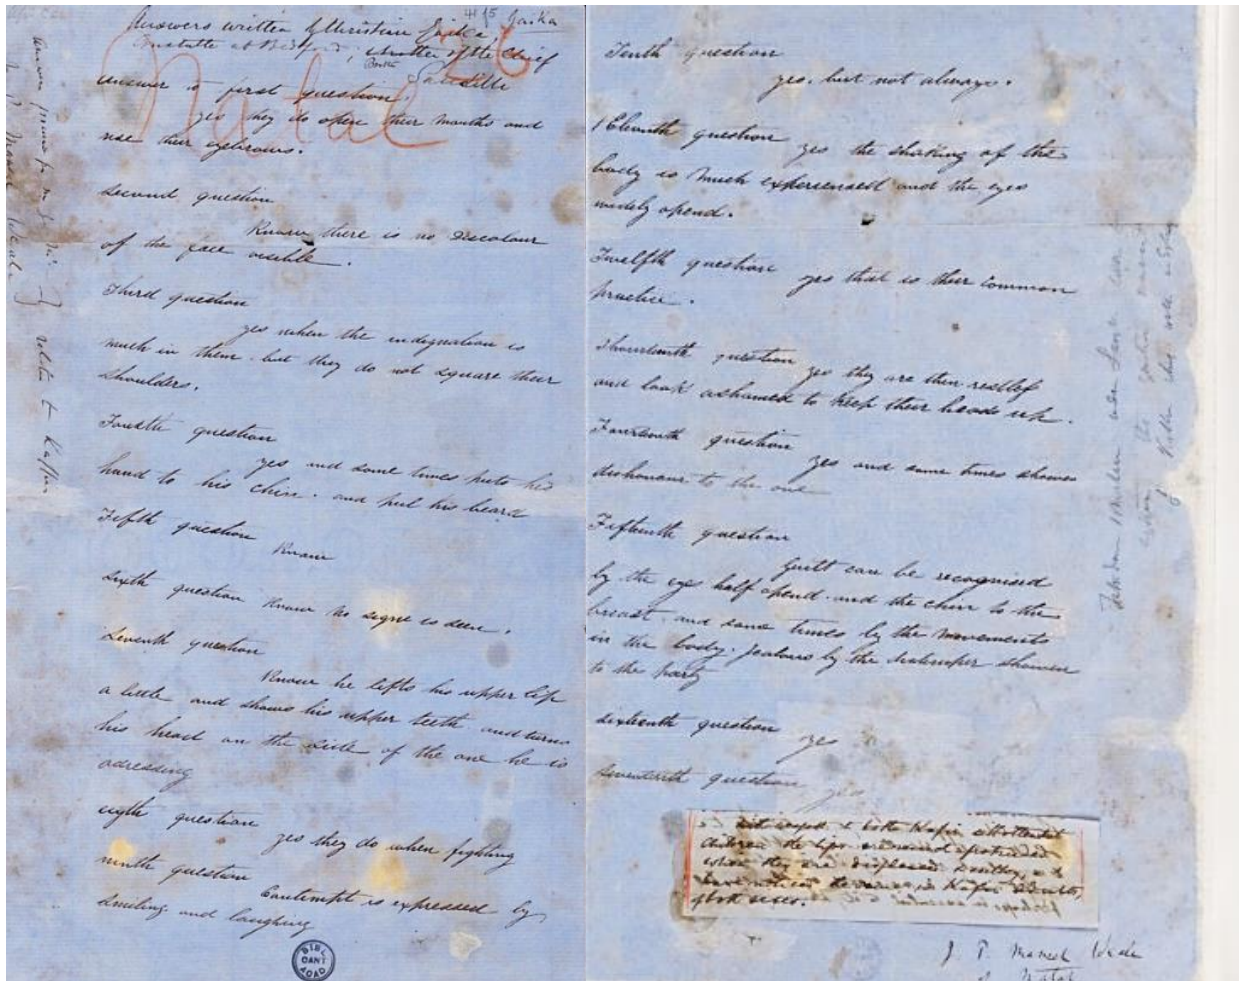 Answers written by Christian Gaika,
Constable at Bedford, brother of the Chief
Sandilli
Gaika
Natal
answer to first question.
yes they do open their mouths and
rise their eyebrows.
second question
Know there is no discolour
of the face visible.
Third question
yes when the indignation is
much in them. but they do not square their
shoulders.
Fourth question
yes and some times puts his
hand to his chin. and pul his beard
Fifth question
Know
sixth question Know no signe is seen.
seventh question
Know he lifts his upper lip
a little and shows his upper teeth and turns
his head on the side of the one he is
adressing
eigth question
yes they do when fighting
ninth question
Contempt is expressed by
smiling and laughing
BIBL
CANT
ACAD
Tenth question
yes. but not always.
Eleventh question yes the shaking of the
body is much experiensed and the eyes
widely opend.
Twelfth question yes that is their common
practice.
Thourteenth question yes they are then restless
and look ashamed to keep their heads up.
Fourteenth question
yes and some times shows
dishonour to the one
Fifteenth question
Guilt can be recognised
by the eyes half opend and the chin to the
breast. and some times by the movements
in the body. jealous by the distemper shown
to the party
sixteenth question
yes
seventeenth question
yes
with respect to both Kafir & Hottentot
children the lips are
when they are displeased
have noticed the same in Kafir adults
of both sexes.
J. P. Mansel Weale
of Natal